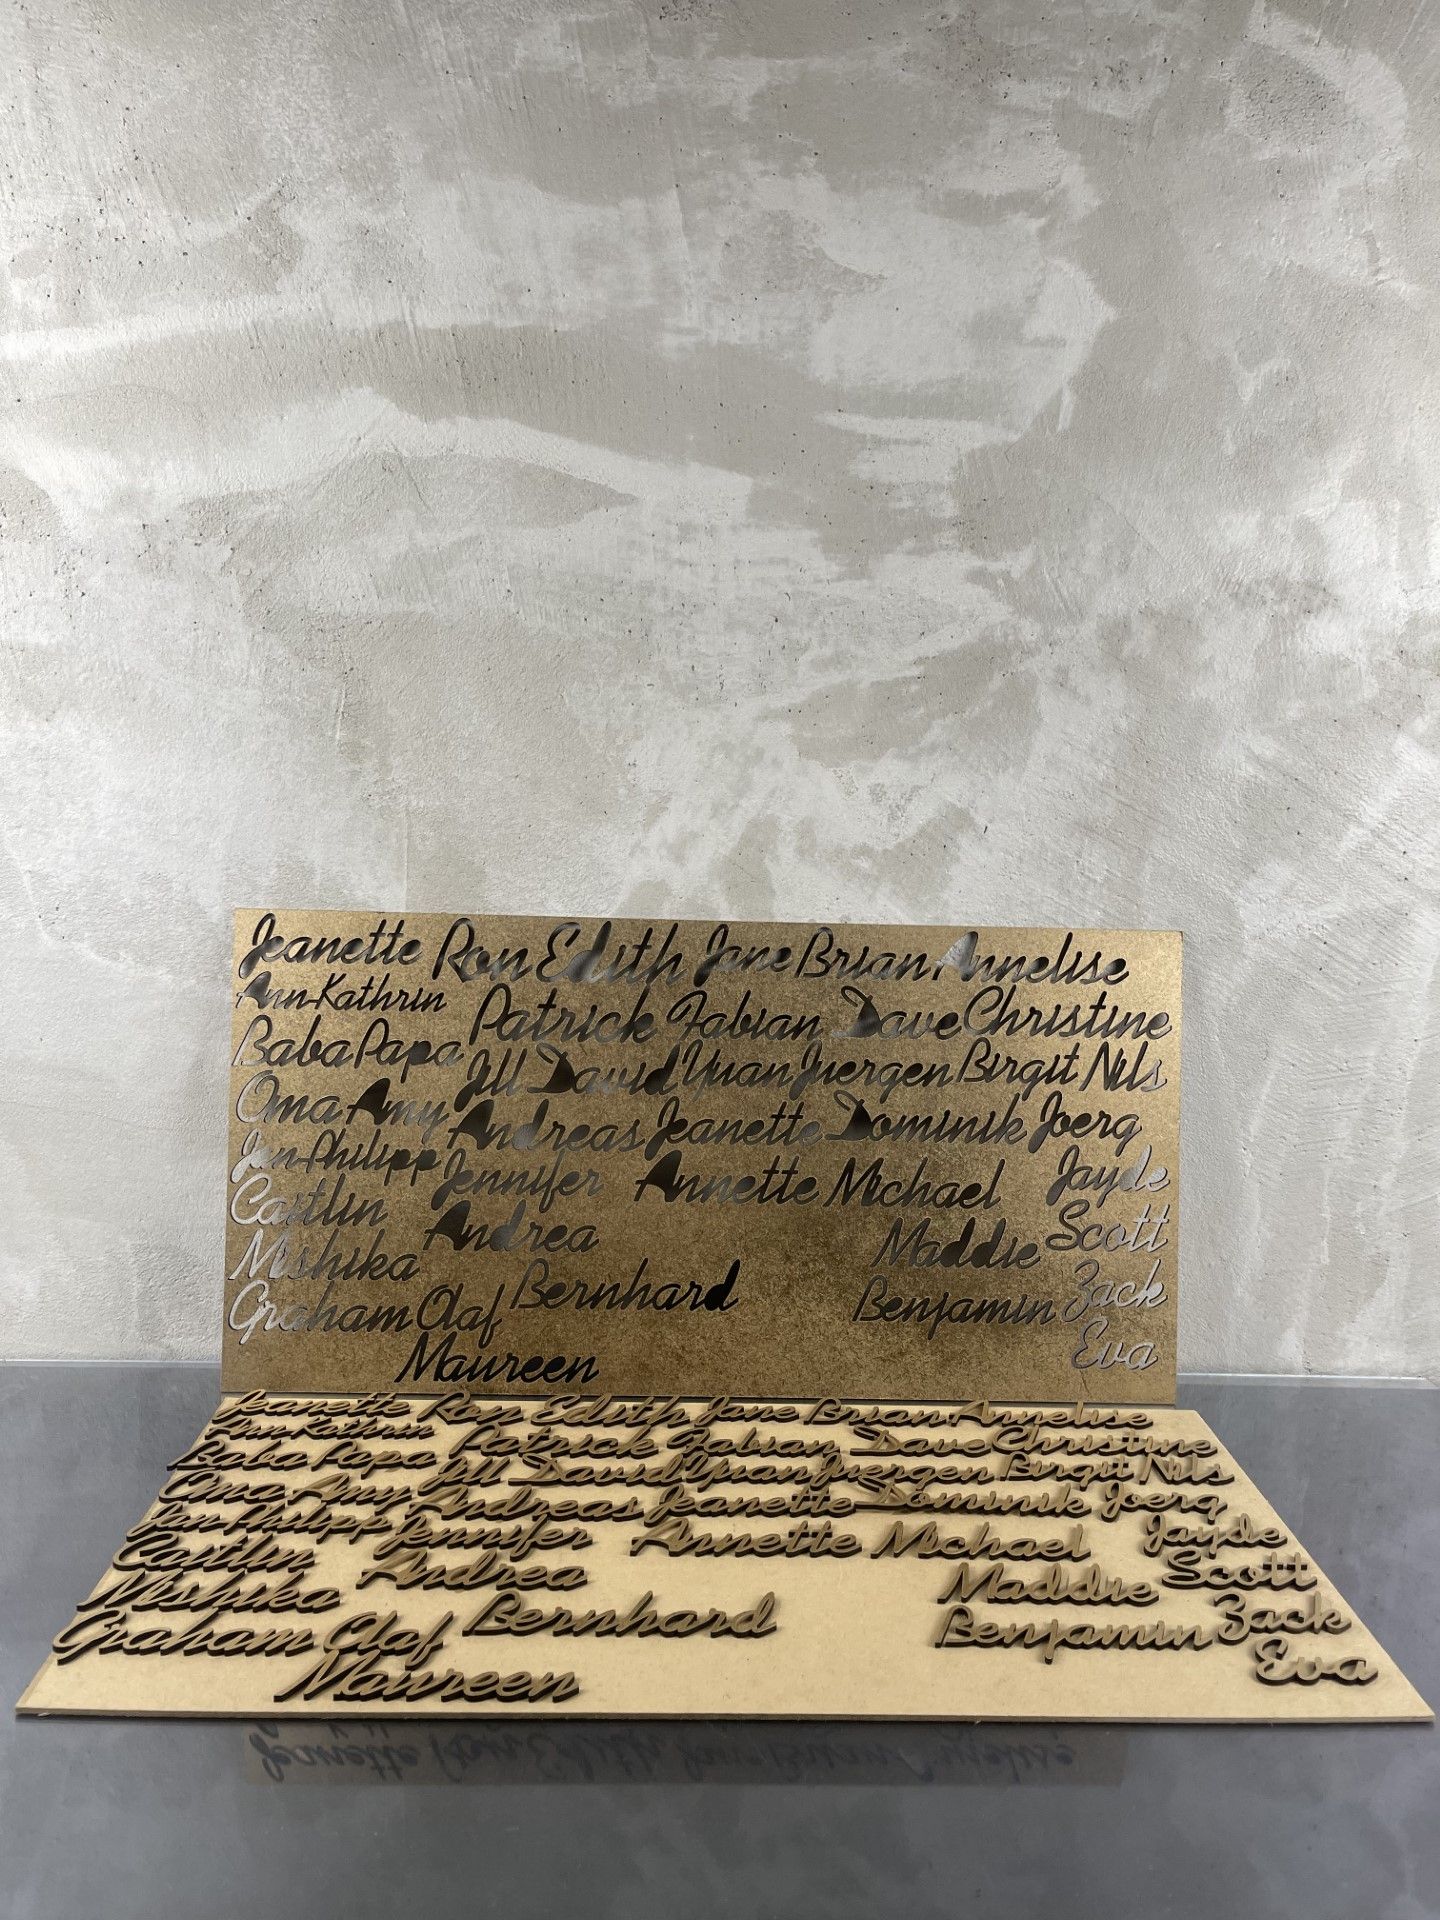 Jeanette Ron Edith Jane Brian Annelise
Ann-Kathrin Patrick Fabian Dave Christine
Baba Papa Jill David Yuan Juergen Birgit Nils
Oma Amy Andreas Jeanette Dominik Joerg
Jan-Philipp Jennifer Annette Michael Jayde
Caitlin Andrea Maddie Scott
Mishika Bernhard Benjamin Zack
Graham Olaf Eva
Maureen
Jeanette Ron Edith Jane Brian Annelise
Ann-Kathrin Patrick Fabian Dave Christine
Baba Papa Jill David Yuan Juergen Birgit Nils
Oma Amy Andreas Jeanette Dominik Joerg
Jan-Philipp Jennifer Annette Michael Jayde
Caitlin Andrea Maddie Scott
Mishika Bernhard Benjamin Zack
Graham Olaf Eva
Maureen